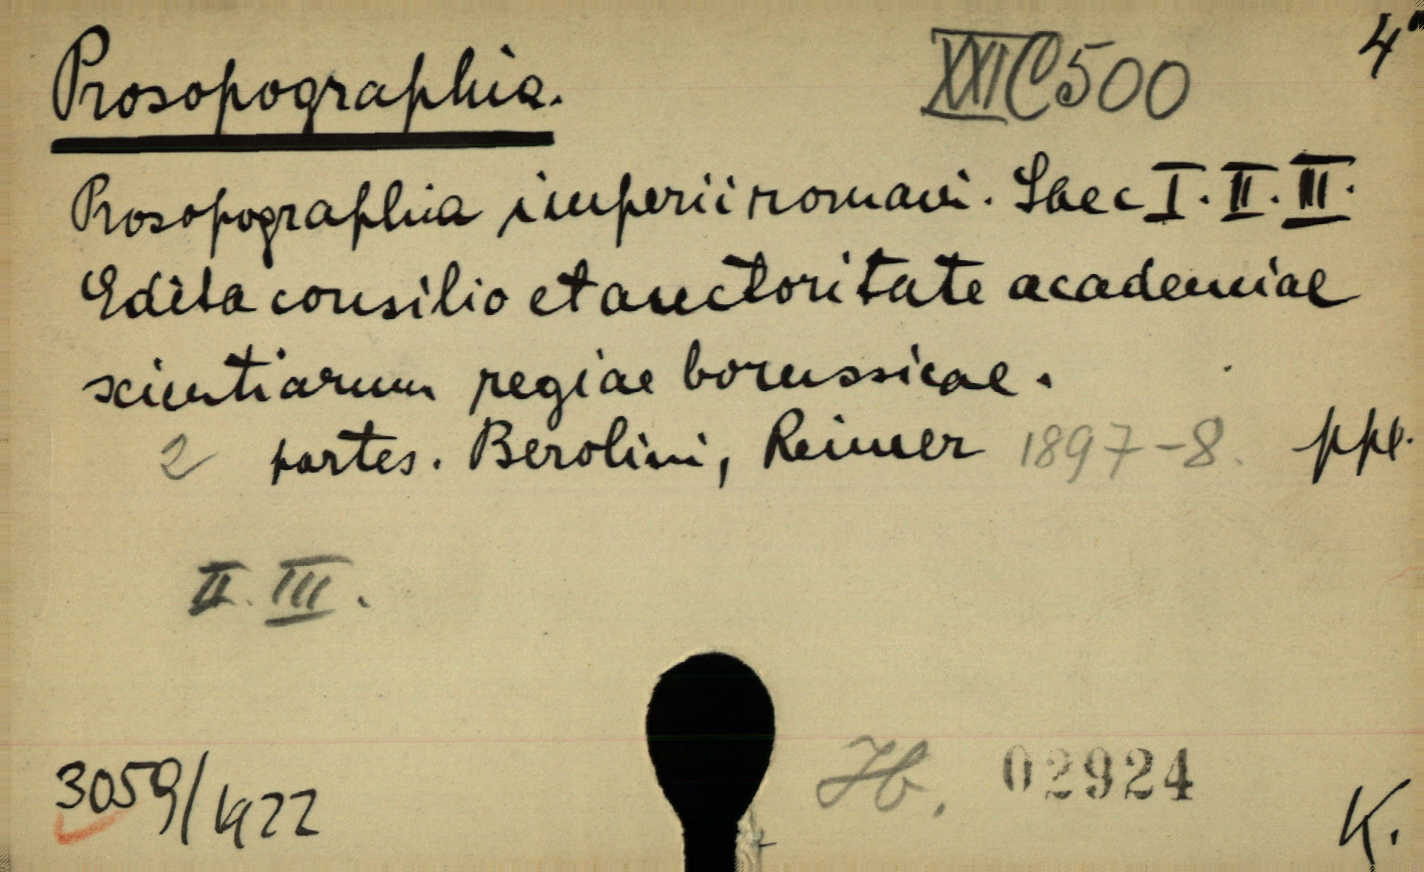 XXII C 500 4°
Prosopographia.
Prosopographia imperii romani. Saec I. II. III.
Edita consilio et auctoritate academiae
scientiarum regiae borussicae.
2 partes. Berolini, Reimer 1897-8. ppl.
II. III.
3059/1922
Hb. 02924
K.